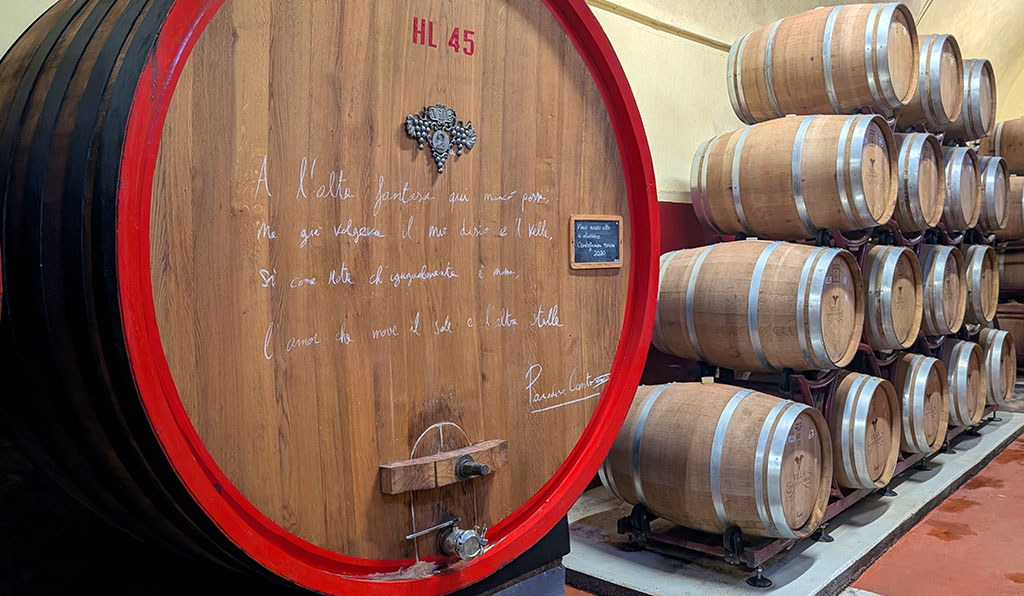 HL 45
A l'alta fantasa qui mancò possa,
Ma già volgeva il mio disio e 'l velle,
Sì come rota ch'igualmente è mossa,
l'amor che move il sole e l'altre stelle
Paradiso, Canto
Vino
e divenire
2020